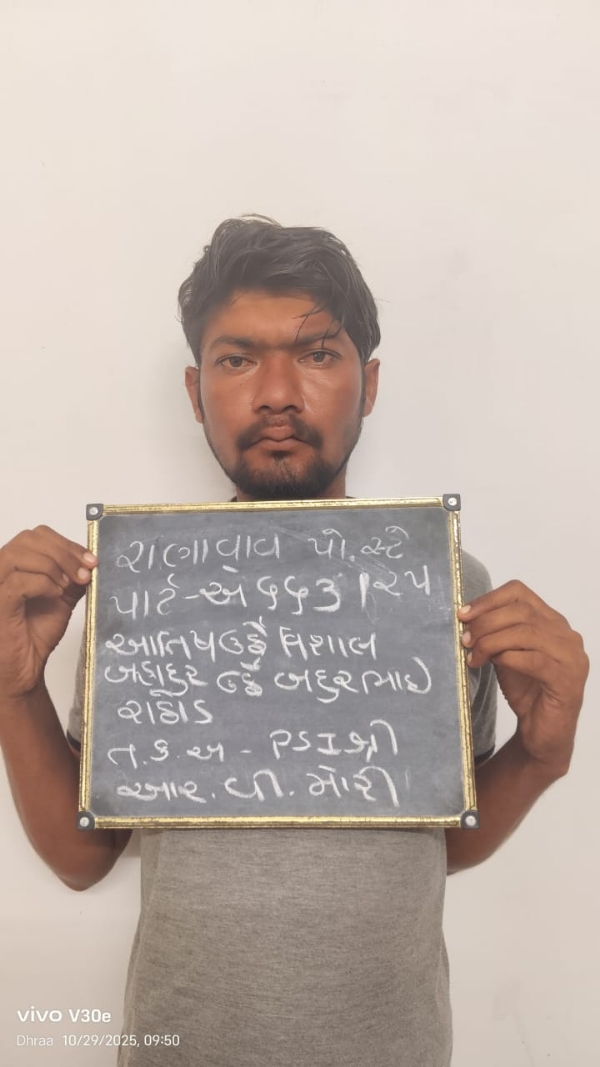 રાણાવાવ પો.સ્ટે
પાર્ટ-અ ૬૫૩/૨૫
આતિષ ઉર્ફે વિશાલ
બહાદુર ઉર્ફે બદુરભાઇ
રાઠોડ
ત.ક.અ - PSI શ્રી
આર.વી.મોરી
vivo V30e
Dhraa 10/29/2025, 09:50